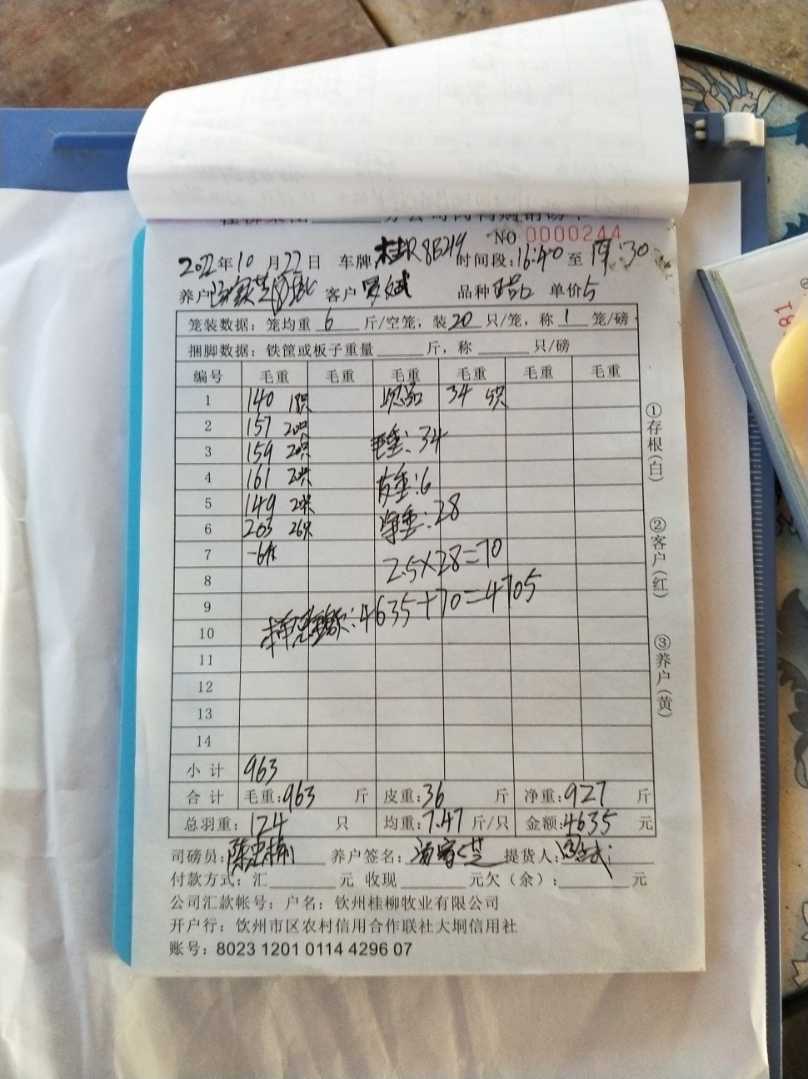 NO 0000244
2022年10月22日 车牌桂R8B219 时间段:16:40至19:30
养户 客户 品种 单价5
笼装数据:笼均重 6 斤/空笼,装20 只/笼,称 1 笼/磅
捆脚数据:铁筐或板子重量 斤,称 只/磅
编号 毛重 毛重 毛重 毛重 毛重 毛重
1 140 18只 次品 34 5只
2 157 20只
3 159 20只 毛重:34
4 161 20只 皮重:6
5 149 20只 净重:28
6 203 26只
7 -6只 2.5×28=70
8
9 4635+70=4705
10
11
12
13
14
小计 963
合计 毛重:963 斤 皮重:36 斤 净重:927 斤
总羽重:124 只 均重:7.47斤/只 金额:4635 元
司磅员: 养户签名: 提货人:
付款方式:汇 元 收现 元欠(余): 元
公司汇款帐号:户名:钦州桂柳牧业有限公司
开户行:钦州市区农村信用合作联社大垌信用社
账号:8023 1201 0114 4296 07
①存根(白)
②客户(红)
③养户(黄)